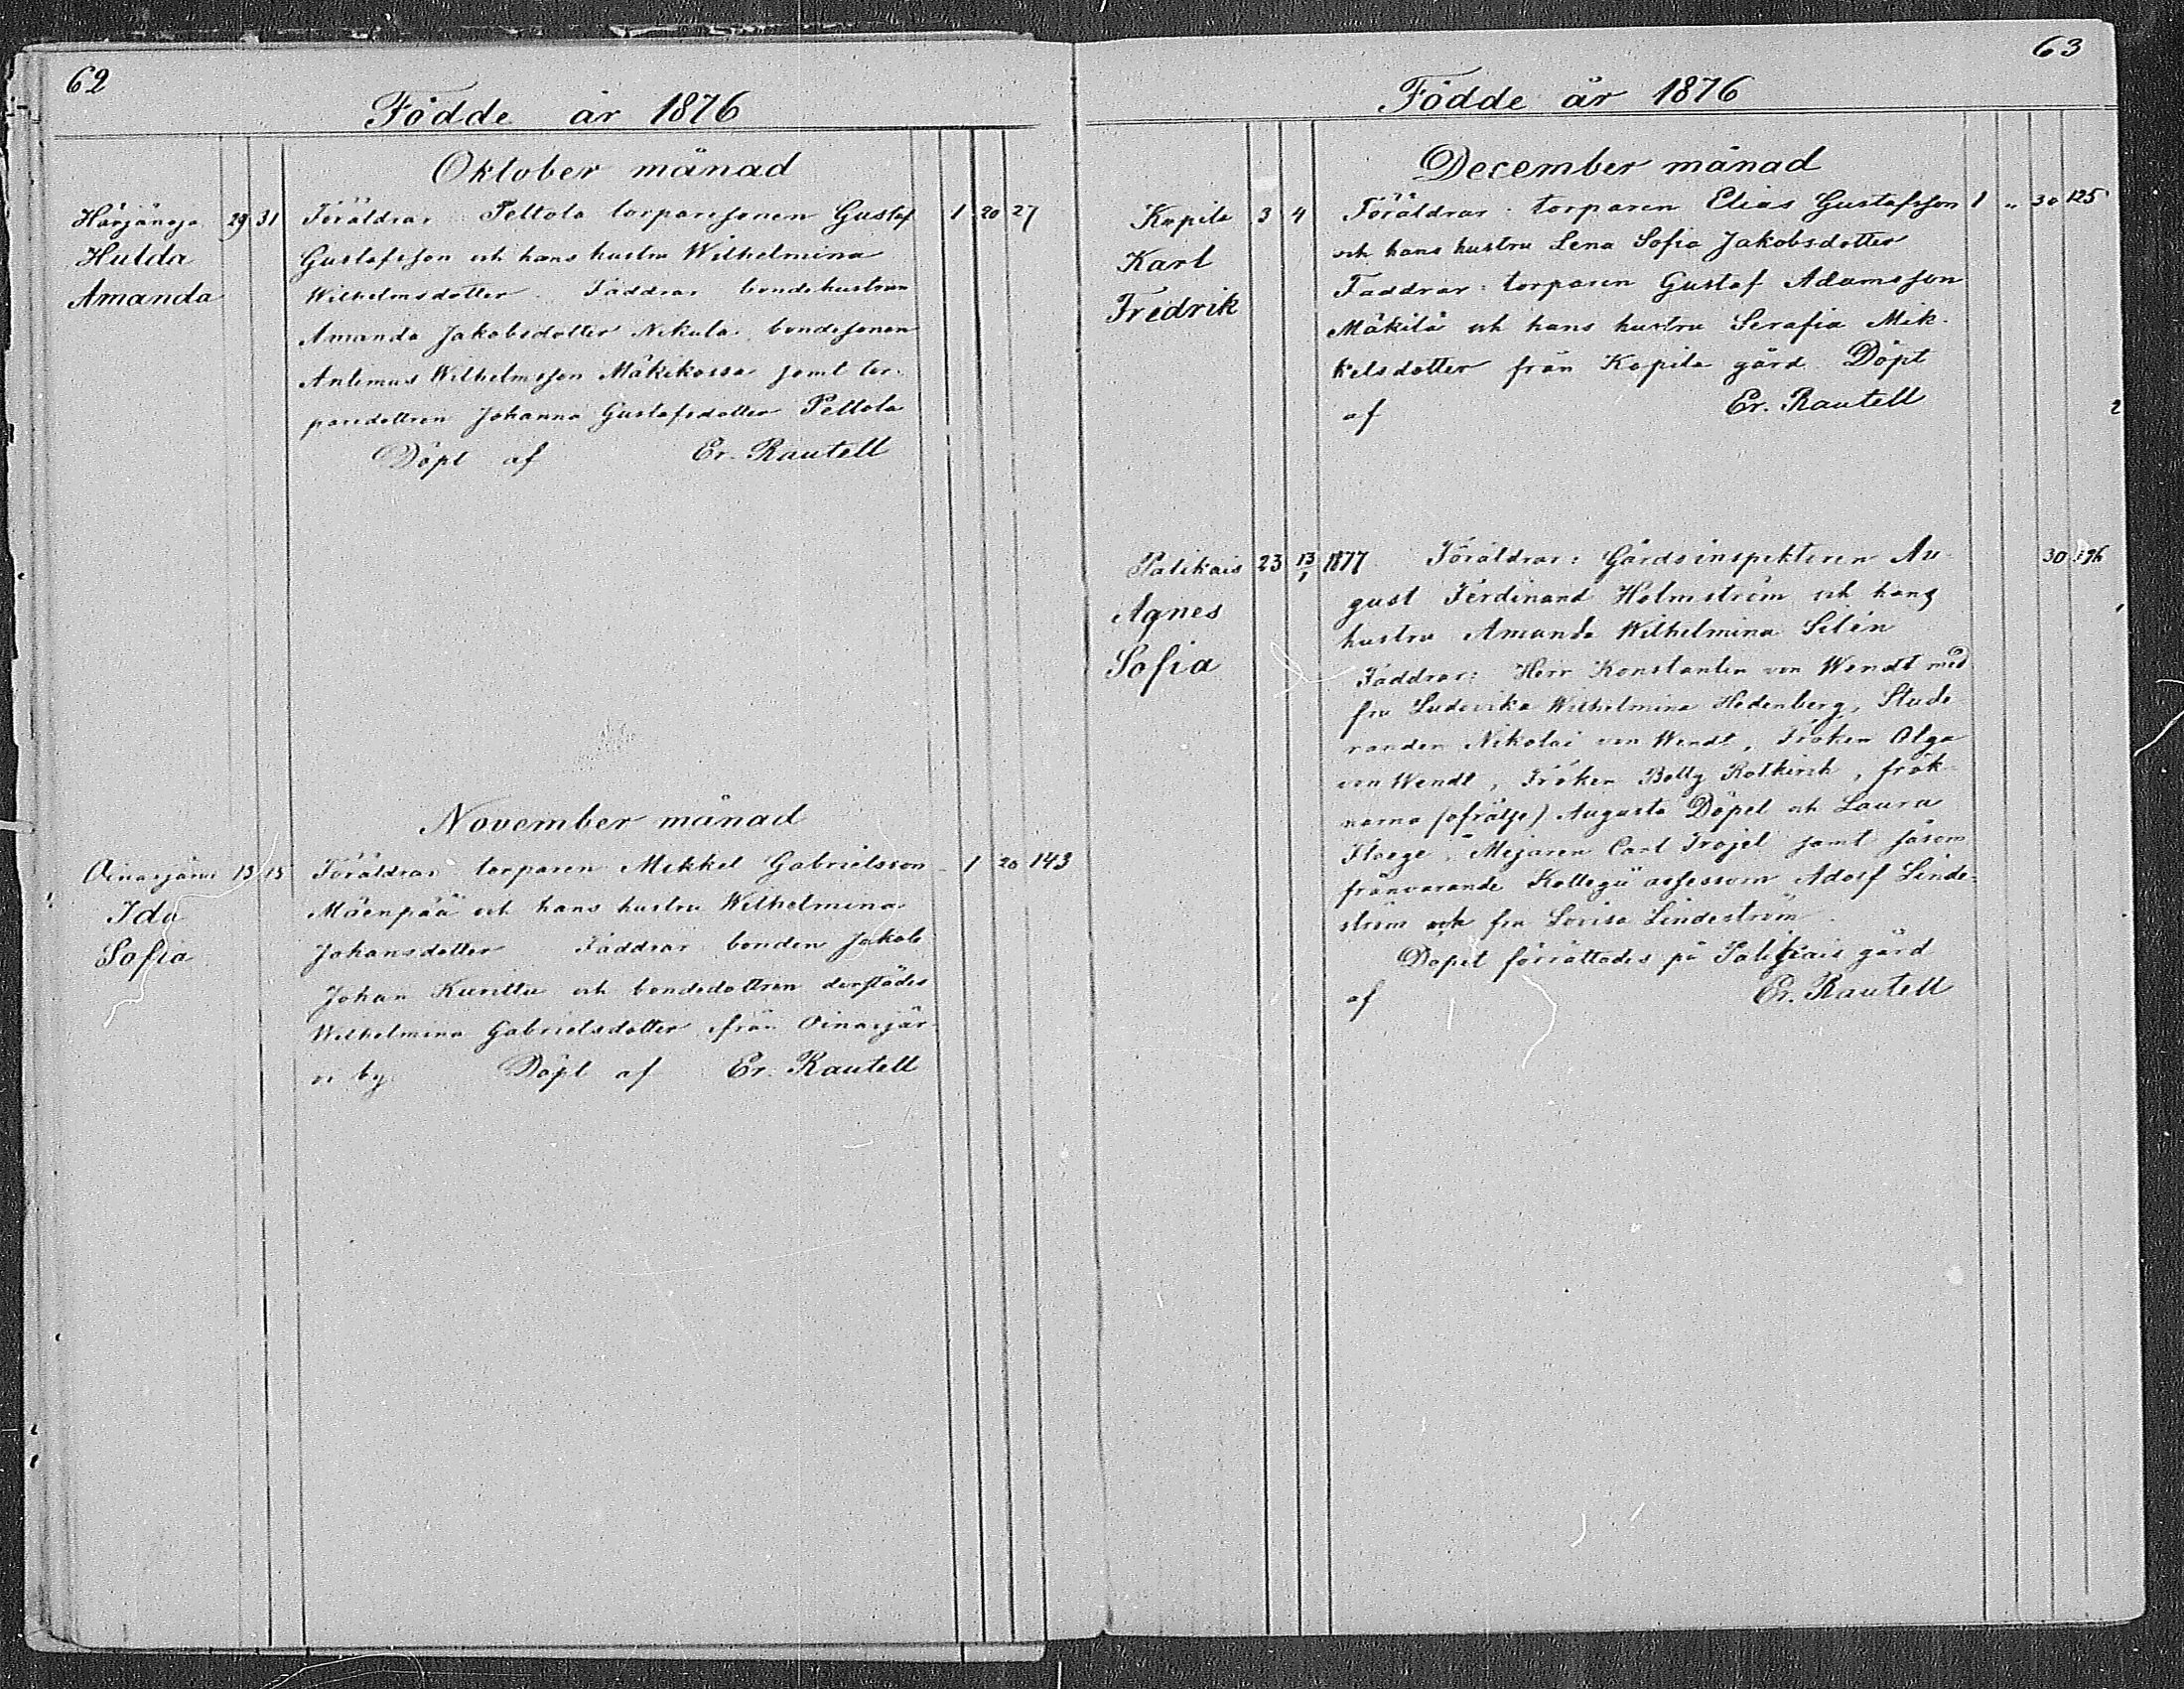 62
Födde år 1876
Oktober månad
Härjänoja 29 31 Föräldrar: Peltola torparesonen Gustaf 1 20 27
Hulda Gustafsson och hans hustru Wilhelmina
Amanda Wilhelmsdotter. Faddrar bondehustrun
Amanda Jakobsdotter Nikula, bondesonen
Antimus Wilhelmsson Mäkikossa samt tor-
paredottren Johanna Gustafsdotter Peltola
Döpt af Er. Rautell
November månad
Oinasjärvi 13 15 Föräldrar torparen Mikkel Gabrielsson 1 20 143
Ida Mäenpää och hans hustru Wilhelmina
Sofia Johansdotter Faddrar bonden Jakob
Johan Kurittu och bondedottren derstädes
Wilhelmina Gabrielsdotter från Oinasjär-
vi by. Döpt af Er. Rautell
63
Födde år 1876
December månad
Kopila 3 4 Föräldrar: torparen Elias Gustafsson 1 " 30 125
Karl och hans hustru Lena Sofia Jakobsdotter
Fredrik Faddrar: torparen Gustaf Adamsson
Mäkilä och hans hustru Serafia Mik-
kelsdotter från Kopila gård. Döpt
af Er. Rautell
Palikais 23 13/1 1877 Föräldrar: Gårdsinspektoren Au- 30
Agnes gust Ferdinand Holmström och hans
Sofia hustru Amanda Wilhelmina Silén
Faddrar: Herr Konstantin von Wendt med
fru Ludovika Wilhelmina Hedenberg, Stude
randen Nikolai von Wendt, Fröken Olga
von Wendt, Fröken Betty Rotkirch, frök-
narna (ofrälse) Augusta Döpel och Laura
Mejaren Carl Trojel samt såsom
frånvarande Kollegii assessorn Adolf Linde-
ström och fru Lovisa Lindeström.
Dopet förrättades på Palikais gård
af Er. Rautell